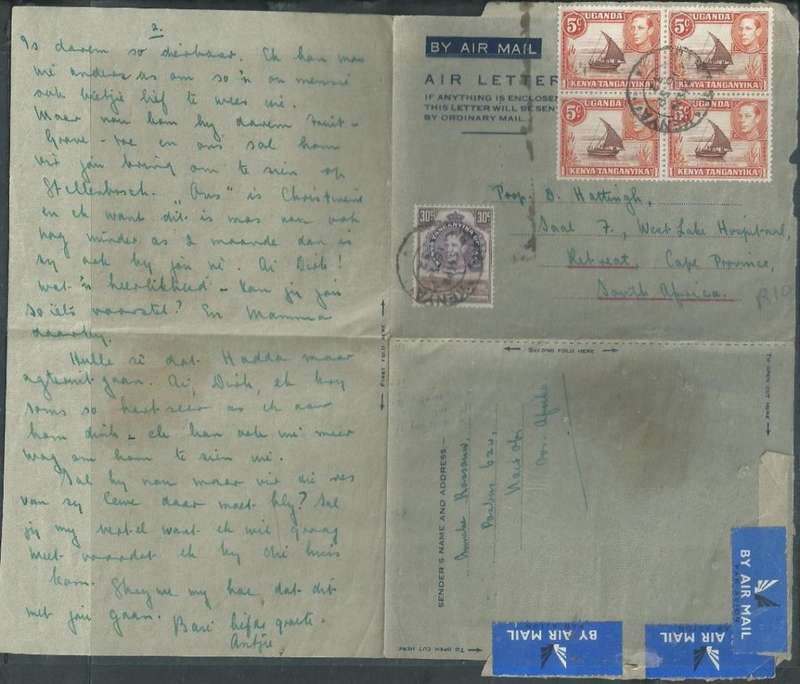 2.
Is darem so dierbaar. Ek kan mos
nie anders as om so 'n ou mensie
ook bietjie lief te wees nie.
Maar nou kom hy darem
en ons sal hom
vir jou bring om te sien op
Stellenbosch. "Ons" is Christmeine
en ek want dit is mos nou ook
nog minder as 2 maande dan is
sy ook by jou nê. Ai Dirk!
wat 'n heerlikheid - kan jy jou
so iets voorstel? En Mamma
daarby.
Hulle sê dat Hadda maar
agteruit gaan. Ai, Dirk, ek kry
soms so hartseer as ek aan
hom dink - ek kan ook nie meer
wag om hom te sien nie.
Sal hy nou maar vir die res
van sy lewe daar moet bly? Sal
jy my vertel want ek wil graag
weet voordat ek by die huis
kom. Skryf vir my hoe dat dit
met jou gaan. Baie liefde groete.
Antjie
BY AIR MAIL
AIR LETTER
IF ANYTHING IS ENCLOSED
THIS LETTER WILL BE SENT
BY ORDINARY MAIL.
UGANDA
5c
KENYA-TANGANYIKA
UGANDA
5c
KENYA-TANGANYIKA
UGANDA
5c
KENYA-TANGANYIKA
UGANDA
5c
KENYA-TANGANYIKA
KENYA
30c 30c
KENYA
Prof. D. Hattingh,
Saal 7., West Lake Hospitaal,
Retreat, Cape Province,
South Africa.
R10
FIRST FOLD HERE
SECOND FOLD HERE
TO OPEN CUT HERE
SENDER'S NAME AND ADDRESS:
Rossouw
Posbus 620,
Nairobi
Oos. Afrika
TO OPEN CUT HERE
BY AIR MAIL
PAR AVION
BY AIR MAIL
PAR AVION
BY AIR MAIL
PAR AVION